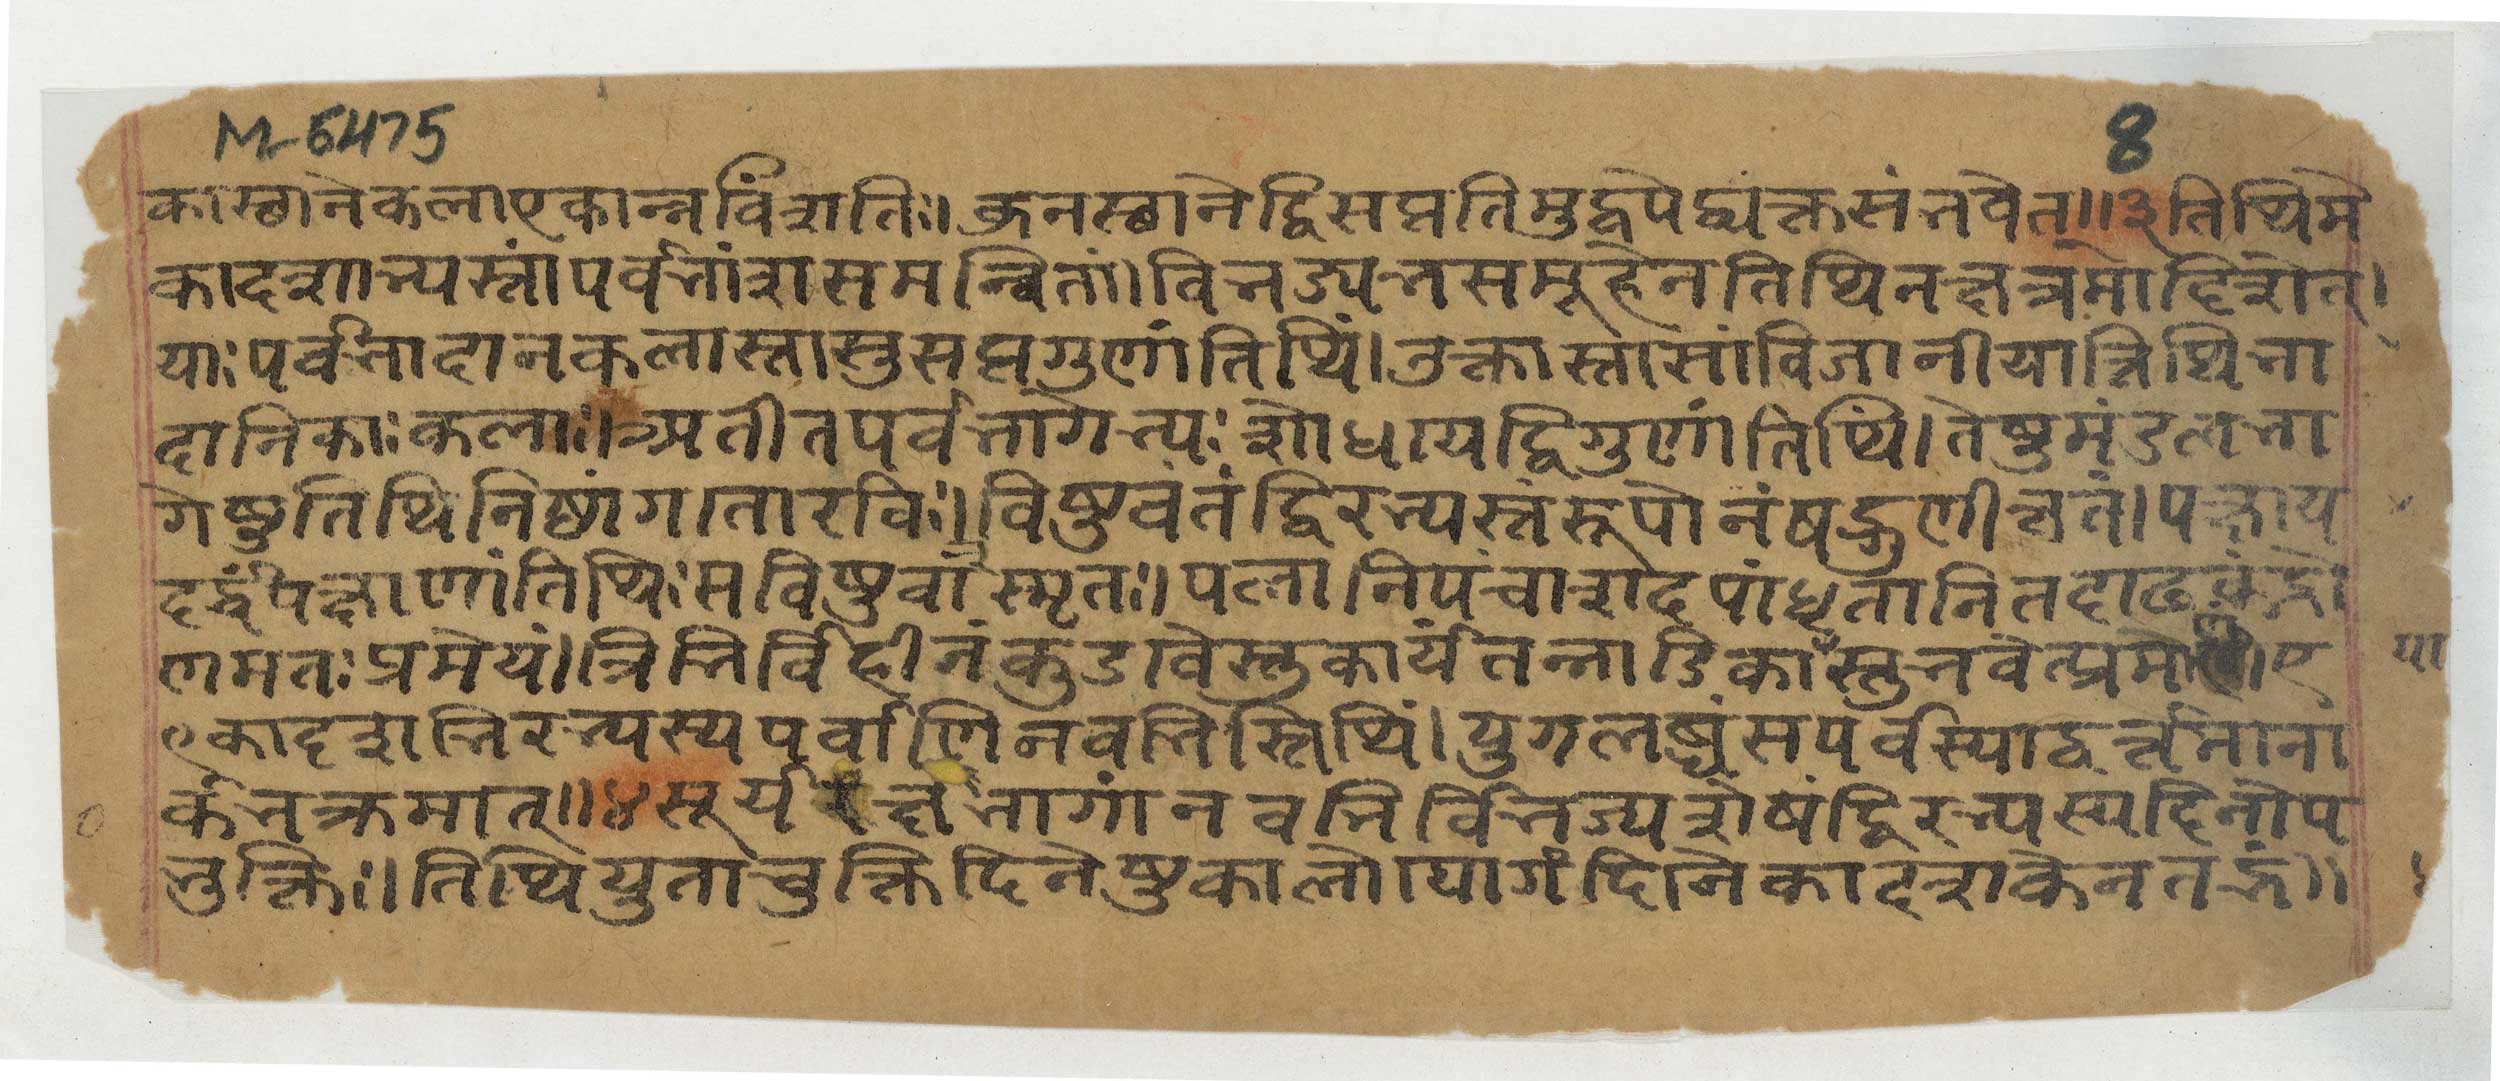 M-5475
8
का स्थाने कला एकान्नविंशतिः। ऊनस्थाने द्विसप्ततिमुद्वपेद्युक्तसंभवेत्॥३ तिथिमे
कादशाभ्यस्तां पर्वभांशसमन्वितां। विभज्य भसमूहेन तिथिनक्षत्रमादिशेत्।
याः पर्वभादानकलास्तास्तु सप्तगुणां तिथिं। उक्तास्तासां विजानीयात्तिथिभा
दानिकाः कलाः। अतीतपर्वभागेभ्यः शोधयेद्द्विगुणां तिथिं। तेषु मंडलभा
गेषु तिथिनिष्ठां गतो रविः। विषुवंतं द्विरभ्यस्तं रूपोनं षड्गुणीकृतं। पक्षा य
दर्द्धं पक्षाणां तिथिः स विषुवान् स्मृतः। पलानि पंचाशदपां धृतानि तदाढकं द्रो
णमतः प्रमेयं। त्रिभिर्विहीनं कुडवैस्तु कार्यं तन्नाडिकायास्तु भवेत्प्रमाणं। ए
एकादशभिरभ्यस्य पर्वाणि नवभिस्तिथिं। युगलब्धं सपर्व स्याद्वर्त्तमाना
र्कभक्रमात्॥४ सूर्यर्क्षभागां नवभिर्विभज्य शेषं द्विरभ्यस्य दिनोप
भुक्तिः। तिथियुता भुक्तिदिनेषु कालो योगं दिनैकादशकेन तद्भं॥